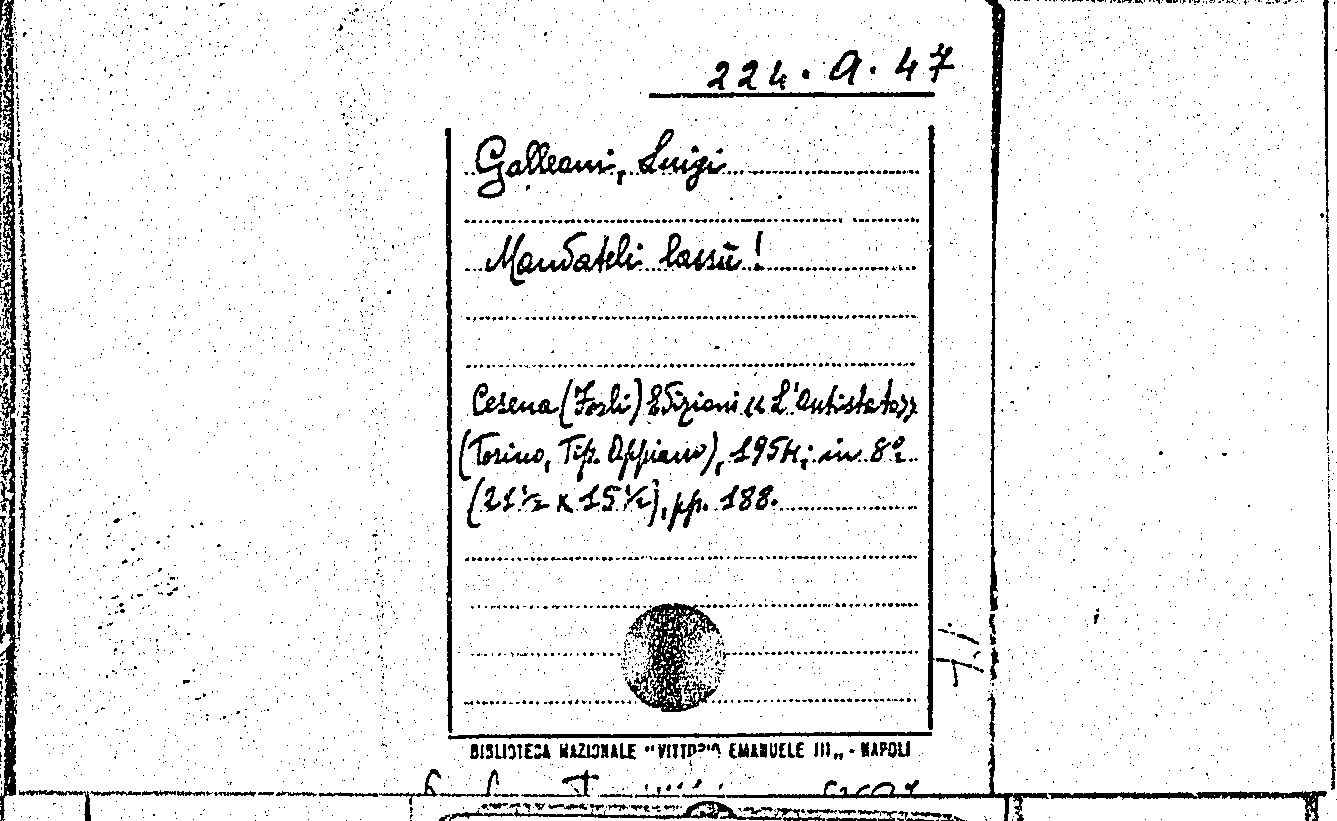 224. A. 47
Galleani, Luigi
Mandateli lassù!
Cesena (Forlì) Edizioni «L'Antistato»
(Torino, Tip. Appiano), 1954; in 8º
(21½ x 15½), pp. 188.
BIBLIOTECA NAZIONALE "VITTORIO EMANUELE III" - NAPOLI